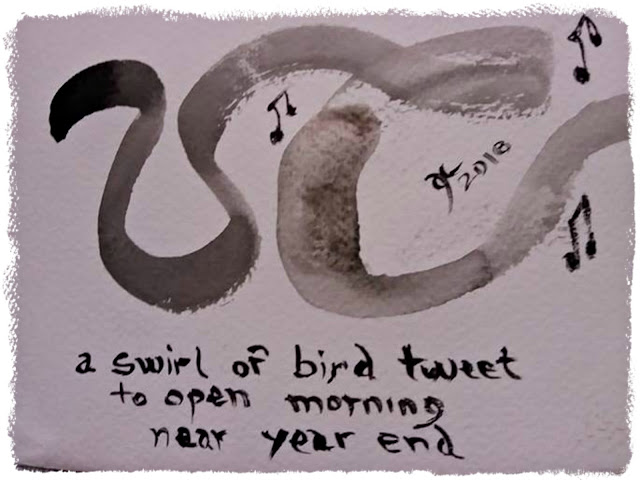 2018
a swirl of bird tweet
to open morning
near year end